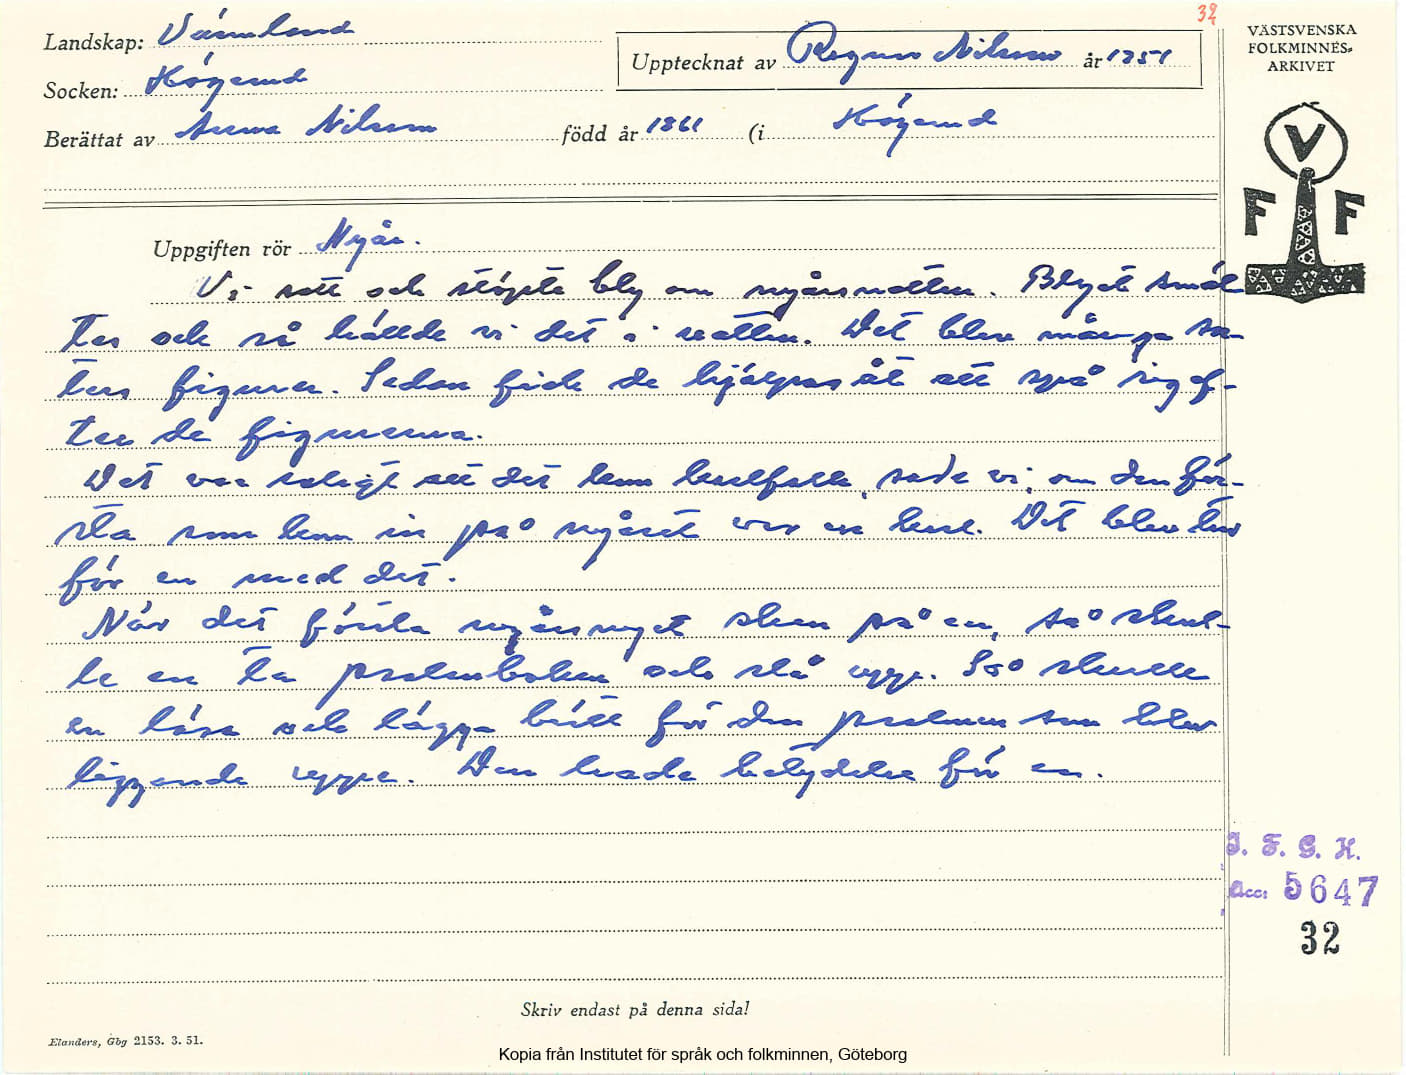 32
Landskap: Värmland
Upptecknat av Ragnar Nilsson år 1951
Socken: Högerud
Berättat av Anna Nilsson född år 1861 (i Högerud
VÄSTSVENSKA
FOLKMINNES-
ARKIVET
V
F F
Uppgiften rör Nyår.
Vi satt och stöpte bly om nyårsnatten. Blyet smäl-
tes och så hällde vi det i vatten. Det blev många sor-
ters figurer. Sedan fick de hjälpas åt att spå sig ef-
ter de figurerna.
Det var roligt att det kom kvellfolk, sade vi, om den för-
sta som kom in på nyåret var en karl. Det blev tur
för en med det.
När det första nyårsnyet sken på en, så skul-
le en ta psalmboken och slå upp. Så skulle
en läsa och lägga bätt för den psalmen som blev
liggande uppe. Den hade betydelse för en.
I. F. G. H.
Acc: 5647
32
Skriv endast på denna sida!
Elanders, Gbg 2153. 3. 51.
Kopia från Institutet för språk och folkminnen, Göteborg